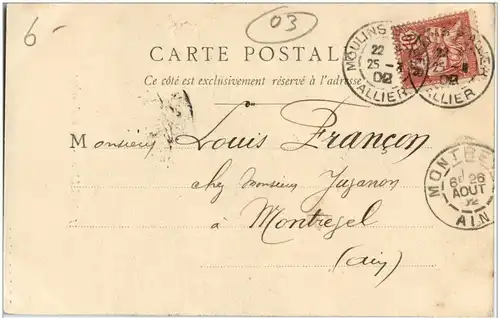 6-
03
CARTE POSTALE
Ce côté est exclusivement réservé à l'adresse
MOULINS
22
25 -
02
ALLIER
22
25
02
ALLIER
Monsieur Louis Françon
chez Monsieur Juzanon
à Montregel
(ain)
6E 26
AOUT
02
AIN